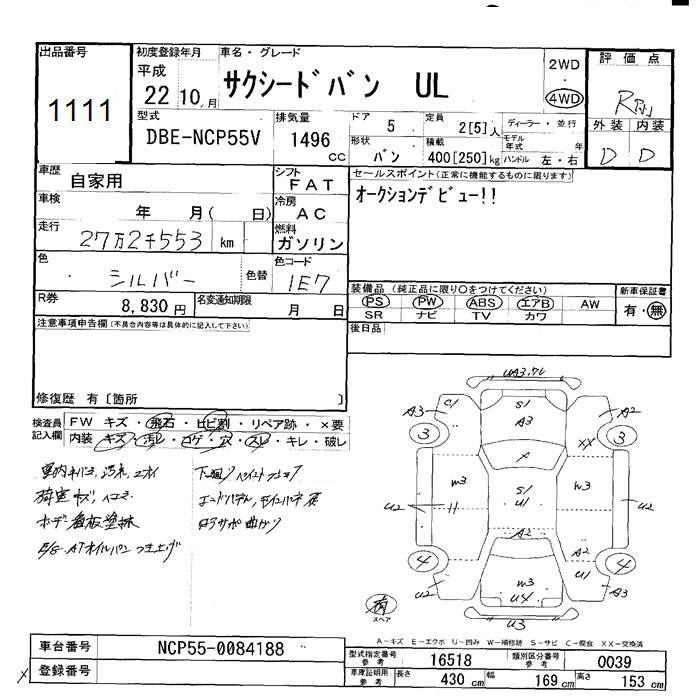 出品番号
1111
初度登録年月
平成
22 10 月
車名・グレード
サクシードバン UL
2WD
・
4WD
評価点
型式
DBE-NCP55V
排気量
1496
CC
ドア
5
定員
2[5]人
ディーラー・並行
形状
バン
積載
400[250]kg
モデル年式 年
ハンドル 左・右
外装 内装
D D
車歴
自家用
シフト
FAT
セールスポイント(正常に機能するものに限ります)
オークションデビュー!!
車検
年 月( 日)
冷房
AC
走行
27万2千553 km
燃料
ガソリン
色
シルバー
色替
色コード
1E7
装備品 (純正品に限り○をつけてください)
新車保証書
PS PW ABS エアB AW
SR ナビ TV カワ
有・無
R券
8,830 円
名変通知期限
月 日
後日品
注意事項申告欄(不具合内容等は具体的に記入して下さい)
修復歴 有〔箇所 〕
検査員
記入欄
FW キズ・飛石・ヒビ割・リペア跡・×要
内装 キズ・汚れ・コゲ・穴・スレ・キレ・破レ
ホデー看板塗抹
E/G.ATオイルパンつき上げ
UA3,
C1
A3
3
S1
A3
A2
3
XX
X
m3
11
U2
S1
U1
U2
A2
A2
4
U2
m3
U4
U1
4
A3
U3
有
スペア
A-キズ E-エクボ U-凹み W-補修跡 S-サビ C-腐食 XX-交換済
車台番号
NCP55-0084188
登録番号
型式指定番号
参考
16518
類別区分番号
参考
0039
車庫証明用
参考
長さ
430 cm
幅
169 cm
高さ
153 cm